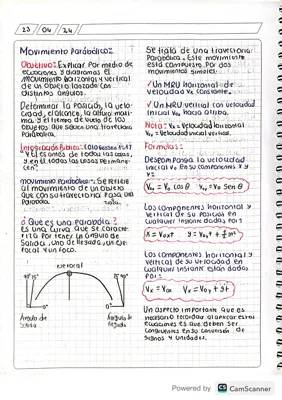 23 / 04 / 24
Movimiento Parabólico:
Objetivo: Explicar Por medio de
ecuaciones y diagramas el
movimiento horizontal y vertical
de un objeto lanzado con
distintos ángulos.
Determinar la posición, la velo-
cidad, el alcance, la altura máxi-
ma, y el tiempo de vuelo de los
objetos que siguen una trayectoria
Parabólica.
Integración Bíblica: Colosenses 1:17
Y él es antes de todas las cosas,
y en él todas las cosas
Movimiento Parabólico: Se refiere
al movimiento de un objeto
que con su trayectoria Pasa una
Parábola.
¿Qué es una Parábola?
Es una curva que se caracte-
riza Por tener un ángulo de
Salida, uno de llegada, un eje
focal y un foco.
eje focal
Ángulo de
Salida
Ángulo de
llegada
Se trata de una trayectoria
Parabólica. Este movimiento
está compuesto Por dos
movimientos simples:
✓ Un MRU horizontal de
velocidad Vx constante.
✓ Un MRU vertical con velocidad
inicial
Nota: Vx = Velocidad horizontal
= Velocidad inicial vertical.
Formulas:
Descomponga la velocidad
inicial Vo en sus componentes x y
y:
Vox = Vo cos θ Voy = Vo Sen θ
Los componentes horizontal y
vertical de su posición en
cualquier instante dados Por:
Los componentes horizontal y
vertical de su velocidad en
cualquier instante están dados
Por:
Vx = Vox Vy = Voy + gt
Un aspecto importante que es
necesario recordar al aplicar estas
ecuaciones es que deben ser
congruentes en su convención de
signos y unidades.
Powered by CS CamScanner